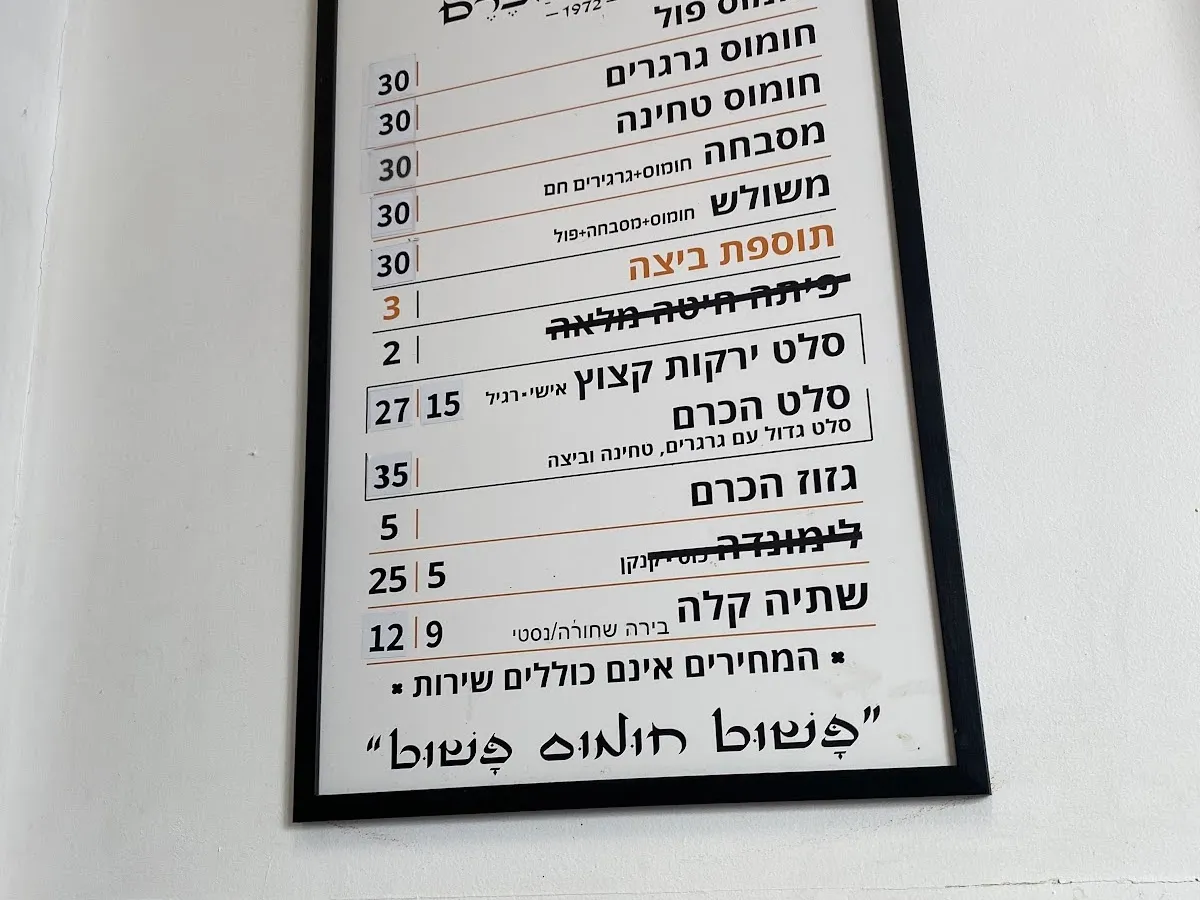 –1972–
חומוס פול 30
חומוס גרגרים 30
חומוס טחינה 30
מסבחה חומוס+גרגירים חם 30
משולש חומוס+מסבחה+פול 30
תוספת ביצה 3
פיתה חיטה מלאה 2
סלט ירקות קצוץ אישי•רגיל 15 | 27
סלט הכרם
סלט גדול עם גרגרים, טחינה וביצה 35
גזוז הכרם 5
לימונדה כוס•קנקן 5 | 25
שתיה קלה בירה שחורה/נסטי 9 | 12
* המחירים אינם כוללים שירות *
"פָּשׁוּט חומוס פָּשׁוּט"